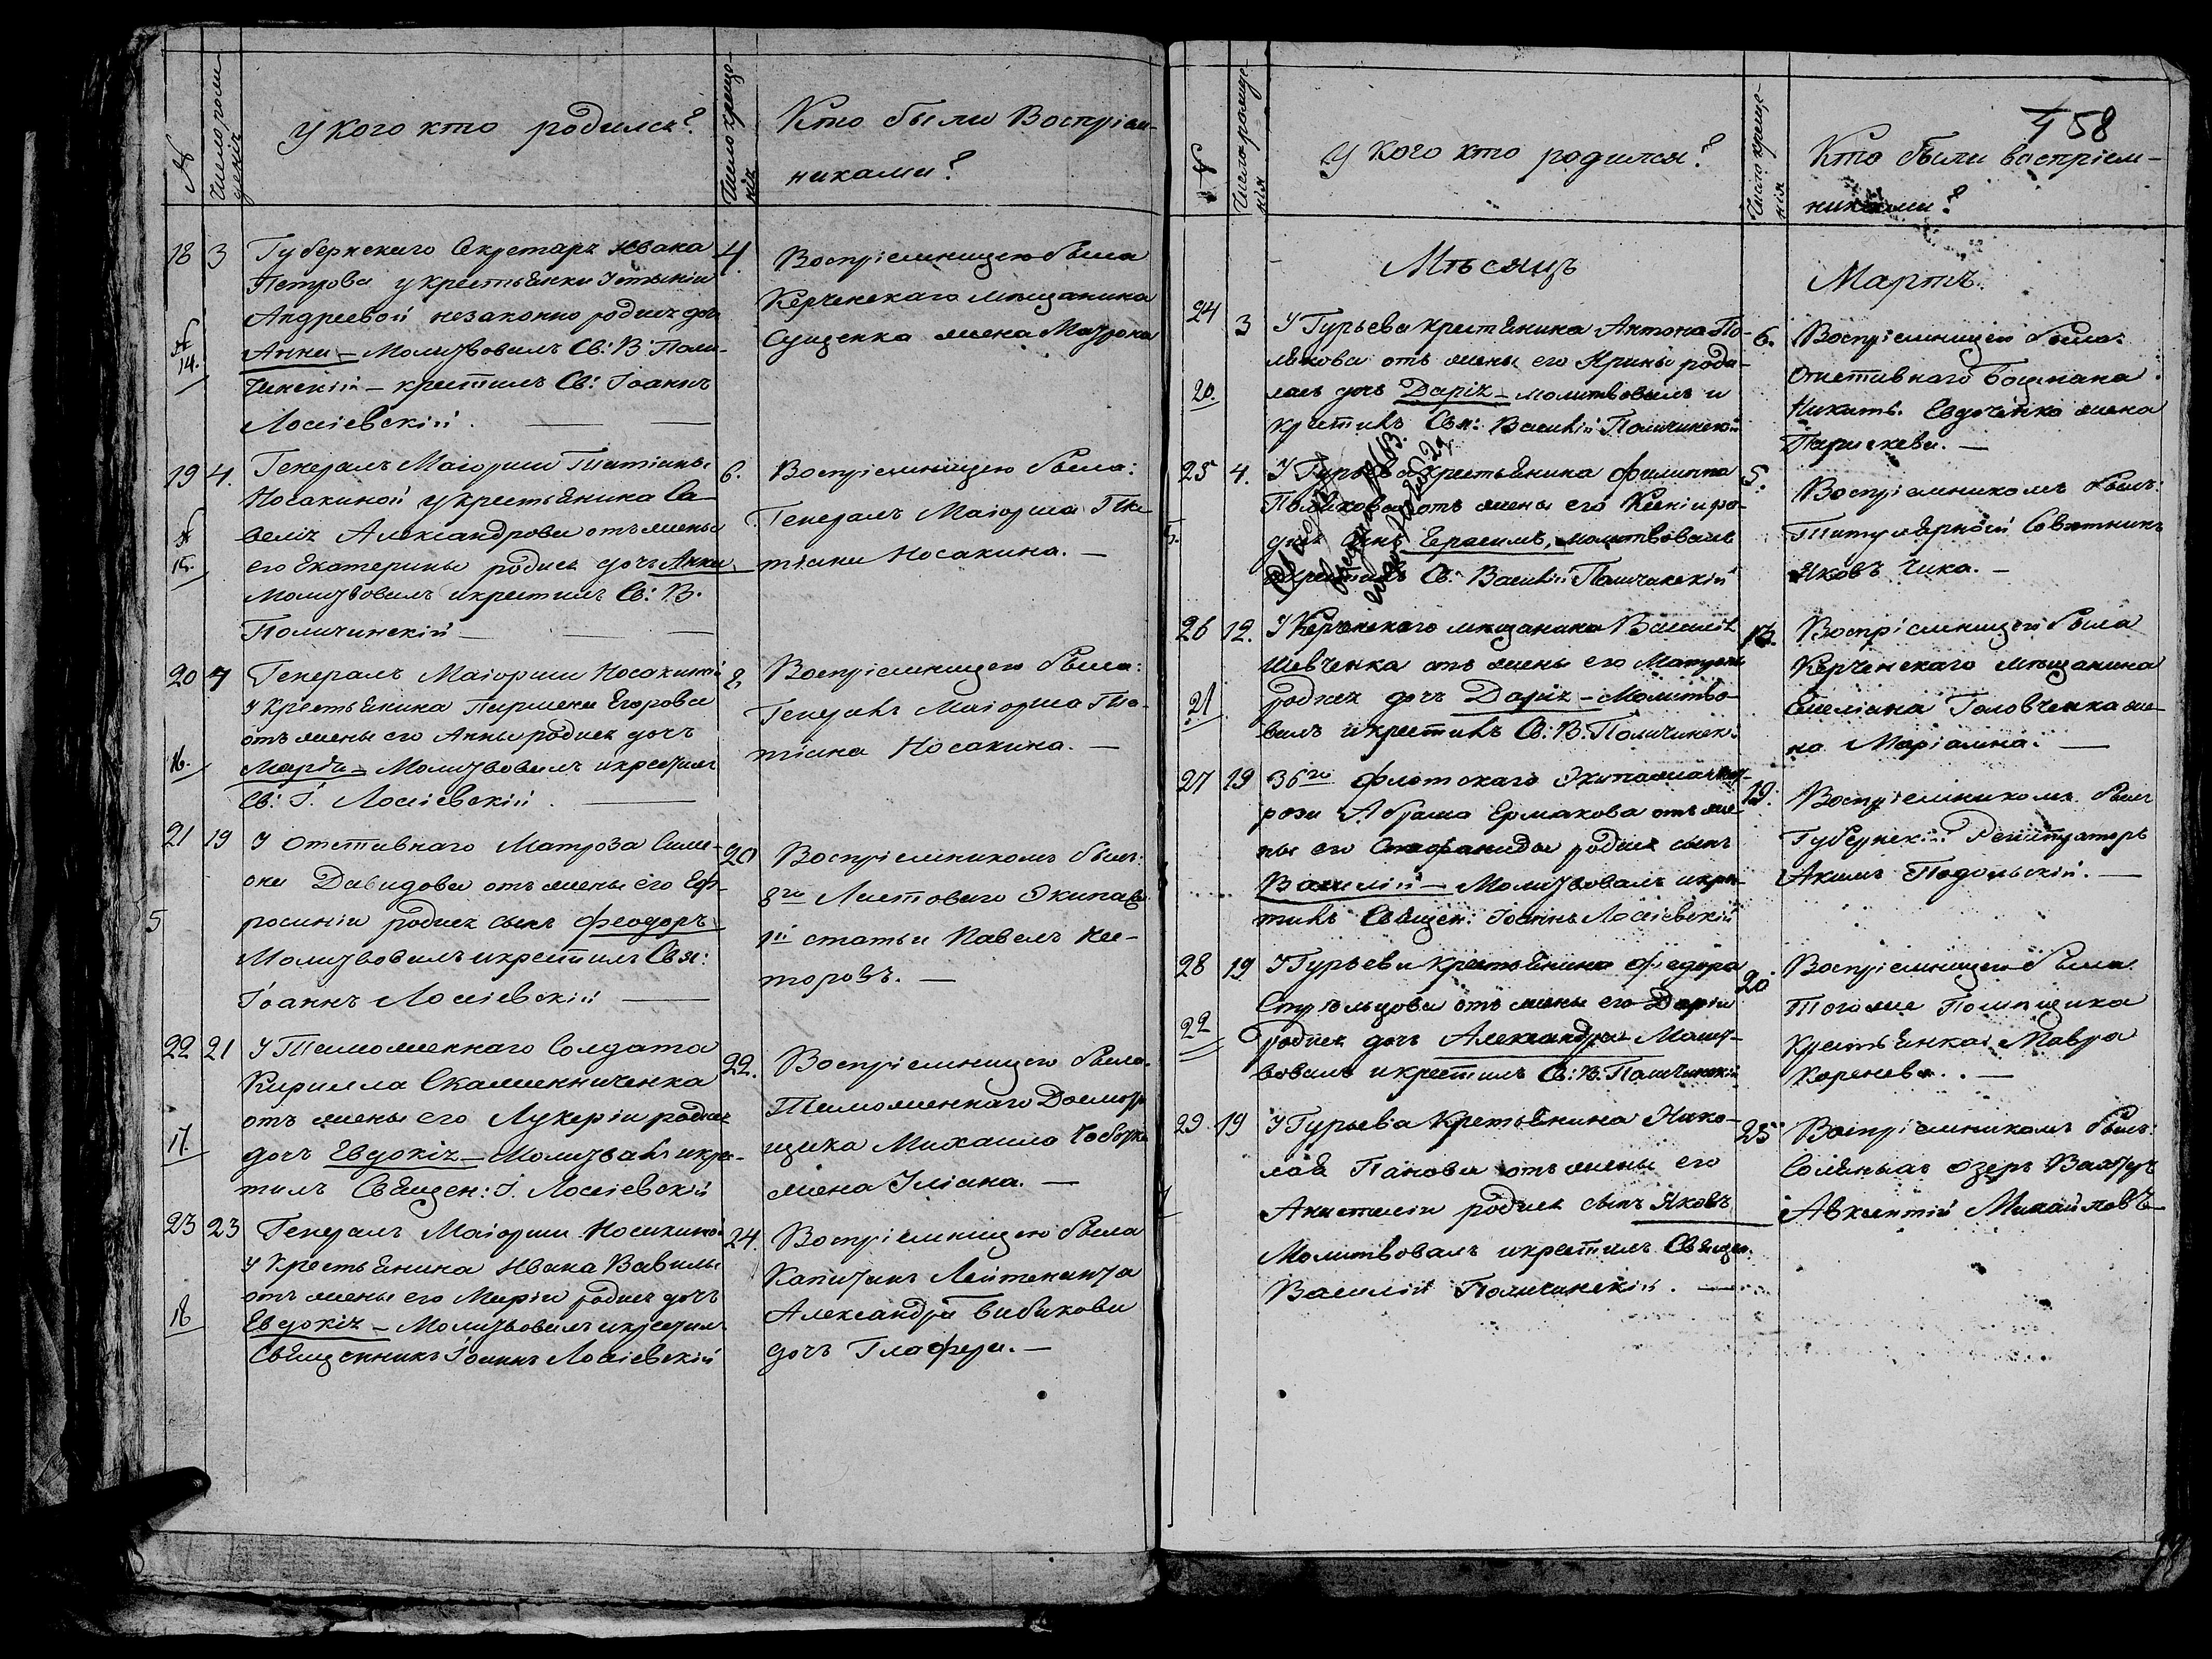 №
Число рожденія
У кого кто родился?
Число крещенія
Кто были Воспріем-
никами?
18 3 Губернскаго Секретаря Ивана
Петрова у крестьянки Устинiи
Андреевой незаконно родися дочь
№ 14. Анна – Молитвовалъ Св: В: Поли-
чинскій – крестилъ Св: Іоаннъ
Лосіевскій.
4. Воспріемницею была
Керченскаго мещанина
Сущенка жена Матрона
19 4. Генералъ Маіорши Татіаны
Носакиной у крестьянина Са-
велія Александрова отъ жены
№ 15. его Екатерины родися дочь Анна
Молитвовалъ и крестилъ Св: В.
Поличинскій
6. Воспріемницею была:
Генералъ Маіорша Та-
тіана Носакина. —
20 7 Генералъ Маіорши Носакиной
У крестьянина Пармена Егорова
отъ жены его Анны родися дочь
16. Марія – Молитвовалъ и крестилъ
Св: І. Лосіевскій.
8. Воспріемницею была:
Генералъ Маіорша Та-
тіана Носакина. —
21 19 У отставнаго Матроза Симе-
она Давидова отъ жены его Еф-
5 росиніи родися сынъ Феодоръ
Молитвовалъ и крестилъ Свя:
Іоаннъ Лосіевскій
20 Воспріемникомъ былъ:
8го Ластоваго Экипажа
1й статьи Павелъ Нес-
торовъ. —
22 21 У Таможеннаго Солдата
Кирилла Скаменниченка
отъ жены его Лукеріи родися
17. дочь Евдокія – Молитвалъ и крес-
тилъ Священ: І. Лосіевскій
22. Воспріемницею была.
Таможеннаго Досмотр
щика Михаила
жена Уліана. —
23 23 Генералъ Маіорши Носакиной
У Крестьянина Ивана Вавилы
отъ жены его Маріи родися дочь
18 Евдокія – Молитвовалъ и крестилъ
Священникъ Іоаннъ Лосіевскій
24. Воспріемницею была
Капитанъ Лейтенанта
Александра Бибикова
дочь Глафера. —
458
№
Число рожде-
нія
У кого кто родился?
Число креще-
нія
Кто были воспріем-
никами?
Мѣсяцъ Мартъ.
24 3 У Гурьева крестьянина Антона По-
лякова отъ жены его Ирины роди-
20. лась дочь Дарія – молитвовалъ и
крестилъ Свя: Василій Поличинскій
6. Воспріемницею была:
Отставнаго Боцмана
Никиты Евдоченка жена
Параскева. —
25 4. У Гурьева крестьянина Филиппа
Полякова отъ жены его Ксеніи ро-
5. дися сынъ Герасимъ, молитвовалъ
и крестилъ Св: Василій Поличинскій
5. Воспріемникомъ былъ:
Титулярной Совѣтникъ
Яковъ Чика. —
26 12. У Керченскаго мещанина Василія
Шевченка отъ жены его Матроны
21 родися дочь Дарія – Молитво-
валъ и крестилъ Св: В. Поличинскі:
Воспріемницею была
Керченскаго мещанина
Емеліана Головченка же-
на Маріамна. —
27 19 36го Флотскаго Экипажа мат-
роза Абрама Ермакова отъ же-
ны его Стефаниды родися сынъ
Василій – Молитвовалъ и крес-
тилъ Священ: Іоаннъ Лосіевскій
19. Воспріемникомъ былъ
Губернскій Регистраторъ
Акимъ Подольскій. —
28 19 У Гурьева крестьянина Федора
Стрельцова отъ жены его Даріи
22 родися дочь Александра – Молит-
вовалъ и крестилъ Св: В. Поличинскій
20. Воспріемницею была
Тогоже Помещика
крестьянка Мавра
Коренева. —
29 19 У Гурьева Крестьянина Нико-
лая Панова отъ жены его
7 Анастасіи родися сынъ Яковъ
Молитвовалъ и крестилъ Священ.
Василій Поличинскій. —
25 Воспріемникомъ былъ:
Соляныхъ озеръ Вахтеръ
Авксентій Михайловъ